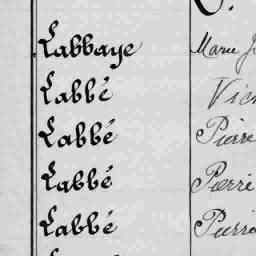 Labbaye Marie
Labbé
Labbé Pierre
Labbé Pierre
Labbé Pierre